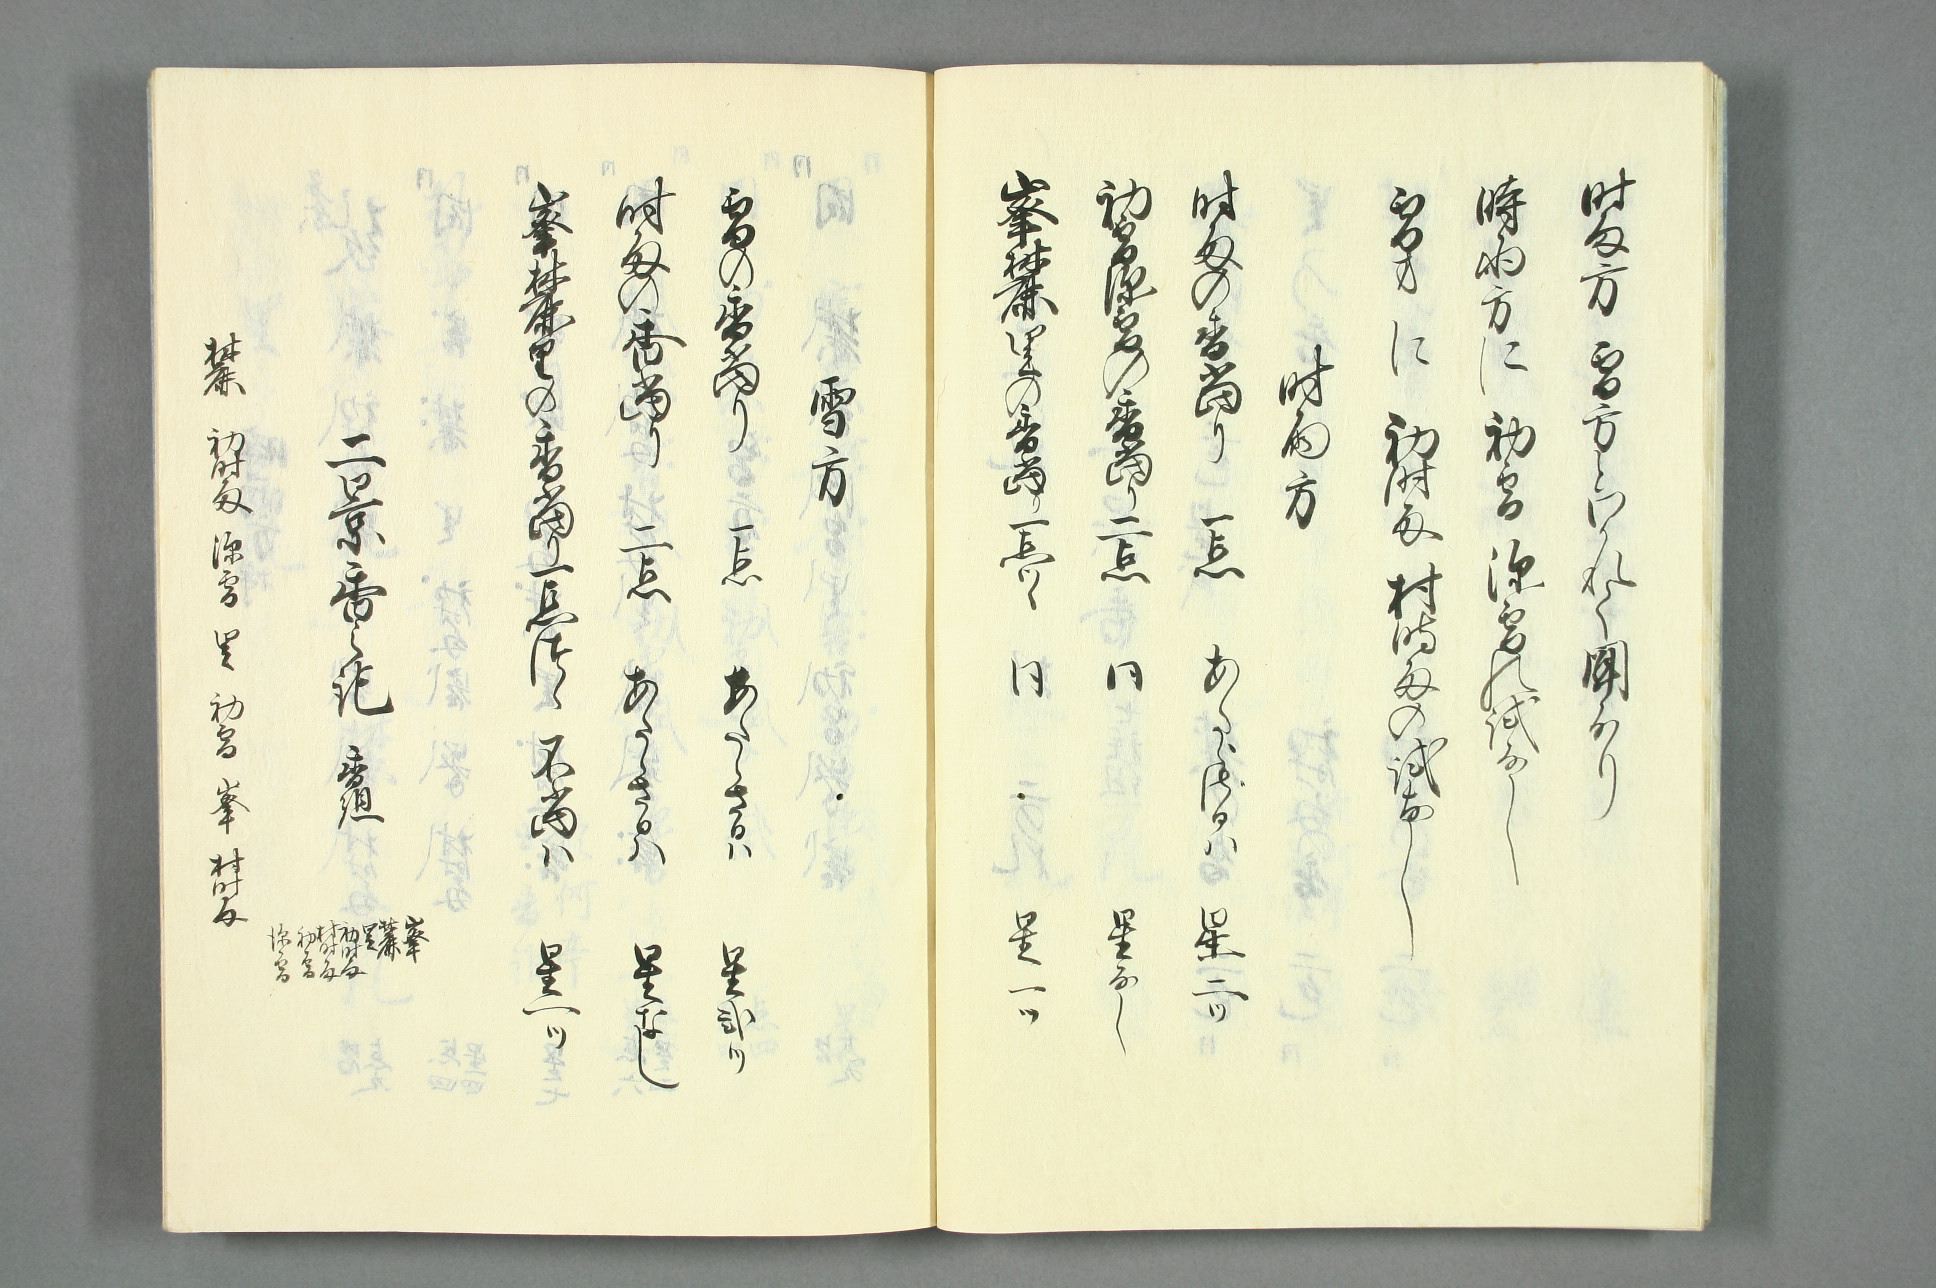 時雨方 雪方とわかれて聞なり
時雨方に 初雪 深雪の試なし
雪方に 初時雨 村時雨の試なし
時雨方
時雨の香當り 一点 あたらされハ 星二ツ
初雪深雪の香當り二点 同 星なし
峯麓里の香當り一点ツヽ 同 星一ツ
雪方
雪の香當り 一点 あたらされハ 星弐ツ
時雨の香當り 二点 あたらされハ 星なし
峯麓里の香當り一点ツヽ 不當ハ 星一ツ
二景香之記 香組
峯
麓
里
初時雨
村時雨
初雪
深雪
麓 初時雨 深雪 里 初雪 峯 村時雨